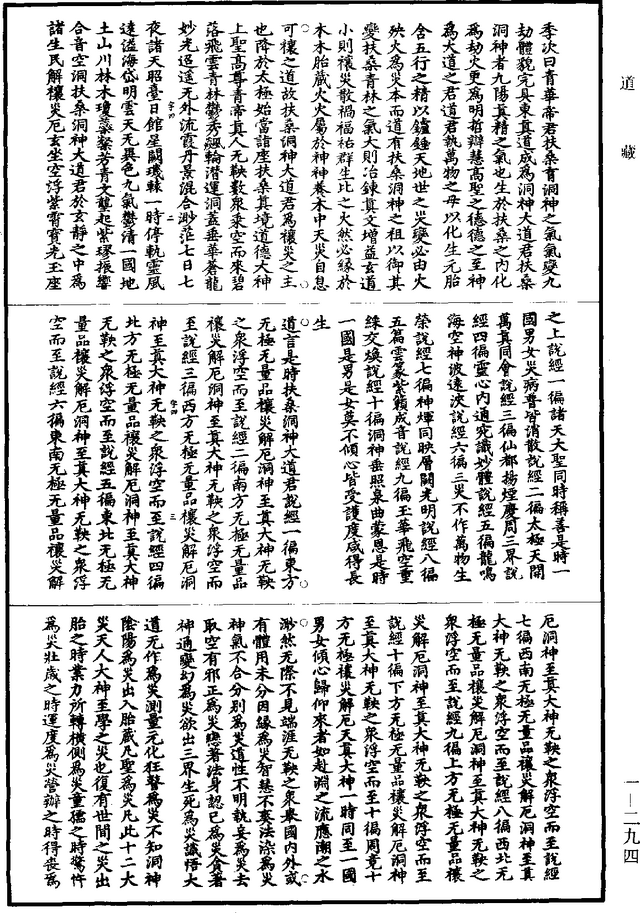 道藏
季次曰青華帝君扶桑育洞神之氣氣變九
劫體貌完具東真道成為洞神大道君扶桑
洞神者九陽真精之氣也生於扶桑之內化
為劫火更為明哲辯慧高聖之德德之至神
為大道之君道君執萬物之母以化生元胎
含五行之精以鑪錘天地世之災變必由火
殃火為災本而道有扶桑洞神之祖以御其
變扶桑青林之氣大則冶鍊真文增益玄道
小則禳災散禍福祐群生比之火然必緣於
木木胎藏火火屬於神神養木中天災自息
可禳之道故扶桑洞神大道君為禳災之主
也降於太極始當諳座扶桑真境道德大神
上聖高尊青帝真人无鞅數衆乘空而來碧
落飛雲青林鬱秀飈輪潛運洞蓋垂華蒼龍
妙光迢遙无外流霞丹景混合渺茫七日七
夜諸天昭臺日館星闢璣轅一時停軌靈風
遠謐海岱明雲天无異色九氣鬱清一國地
土山川林木瓊蘂繁芳青文起紫璆振響
合音空洞扶桑洞神大道君於玄靜之中為
諸生民解禳災厄玄坐空浮紫霄寶光玉座
之上說經一徧諸天大聖同時稱善是時一
國男女災病普皆消散說經二徧太極天開
萬真同會說經三徧仙都揚煙慶周三界說
經四徧靈心內通究識妙體說經五徧龍鳴
海空神波遠泱說經六徧三災不作萬物生
榮說經七徧神煇同映層闕光明說經八徧
五篇雲篆紫籟成音說經九徧玉華飛空重
綠交煥說經十徧洞神垂照衆曲蒙恩是時
一國是男是女莫不傾心皆受護度咸得長
生
道言是時扶桑洞神大道君說經一徧東方
无極无量品禳災解厄洞神至真大神无鞅
之衆浮空而至說經二徧南方无極无量品
禳災解厄洞神至真大神无鞅之衆浮空而
至說經三徧西方无極无量品禳災解厄洞
神至真大神无鞅之衆浮空而至說經四徧
北方无極无量品禳災解厄洞神至真大神
无鞅之衆浮空而至說經五徧東北无極无
量品禳災解厄洞神至真大神无鞅之衆浮
空而至說經六徧東南无極无量品禳災解
厄洞神至真大神无鞅之衆浮空而至說經
七徧西南无極无量品禳災解厄洞神至真
大神无鞅之衆浮空而至說經八徧西北无
極无量品禳災解厄洞神至真大神无鞅之
衆浮空而至說經九徧上方无極无量品禳
災解厄洞神至真大神无鞅之衆浮空而至
說經十徧下方无極无量品禳災解厄洞神
至真大神无鞅之衆浮空而至十徧周竟十
方无極禳災解厄天真大神一時同至一國
男女傾心歸仰來者如赴淵之流應潮之水
渺然无際不見端涯无鞅之衆舉國內外或
有體用未分因緣為災智慧不爽法染為災
神氣不合分別為災道性不明執妄為災去
取空有邪正為災戀著法身認已為災貪著
神通變幻為災欲出三界生死為災識悟大
道无作為災測量元化狂瞽為災不知洞神
陰陽為災出入胎藏凡聖為災凡此十二大
災天人大神至學之災也復有世間之災出
胎之時業力所轉橫側為災童孺之時驚忤
為災壯歲之時運度為災營辦之時得喪為
一—二九四